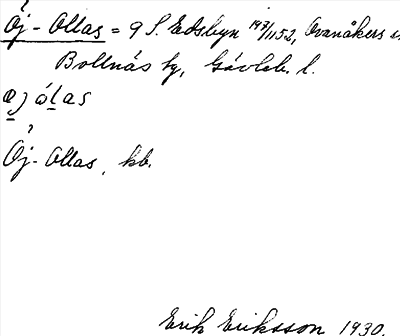 Öj-Ollas = 9 S. Edsbyn 193/1152, Ovanåkers s
Bollnäs hg, Gävleb. l.
øj ólas
Öj-Ollas, kb.
Erik Eriksson 1930.